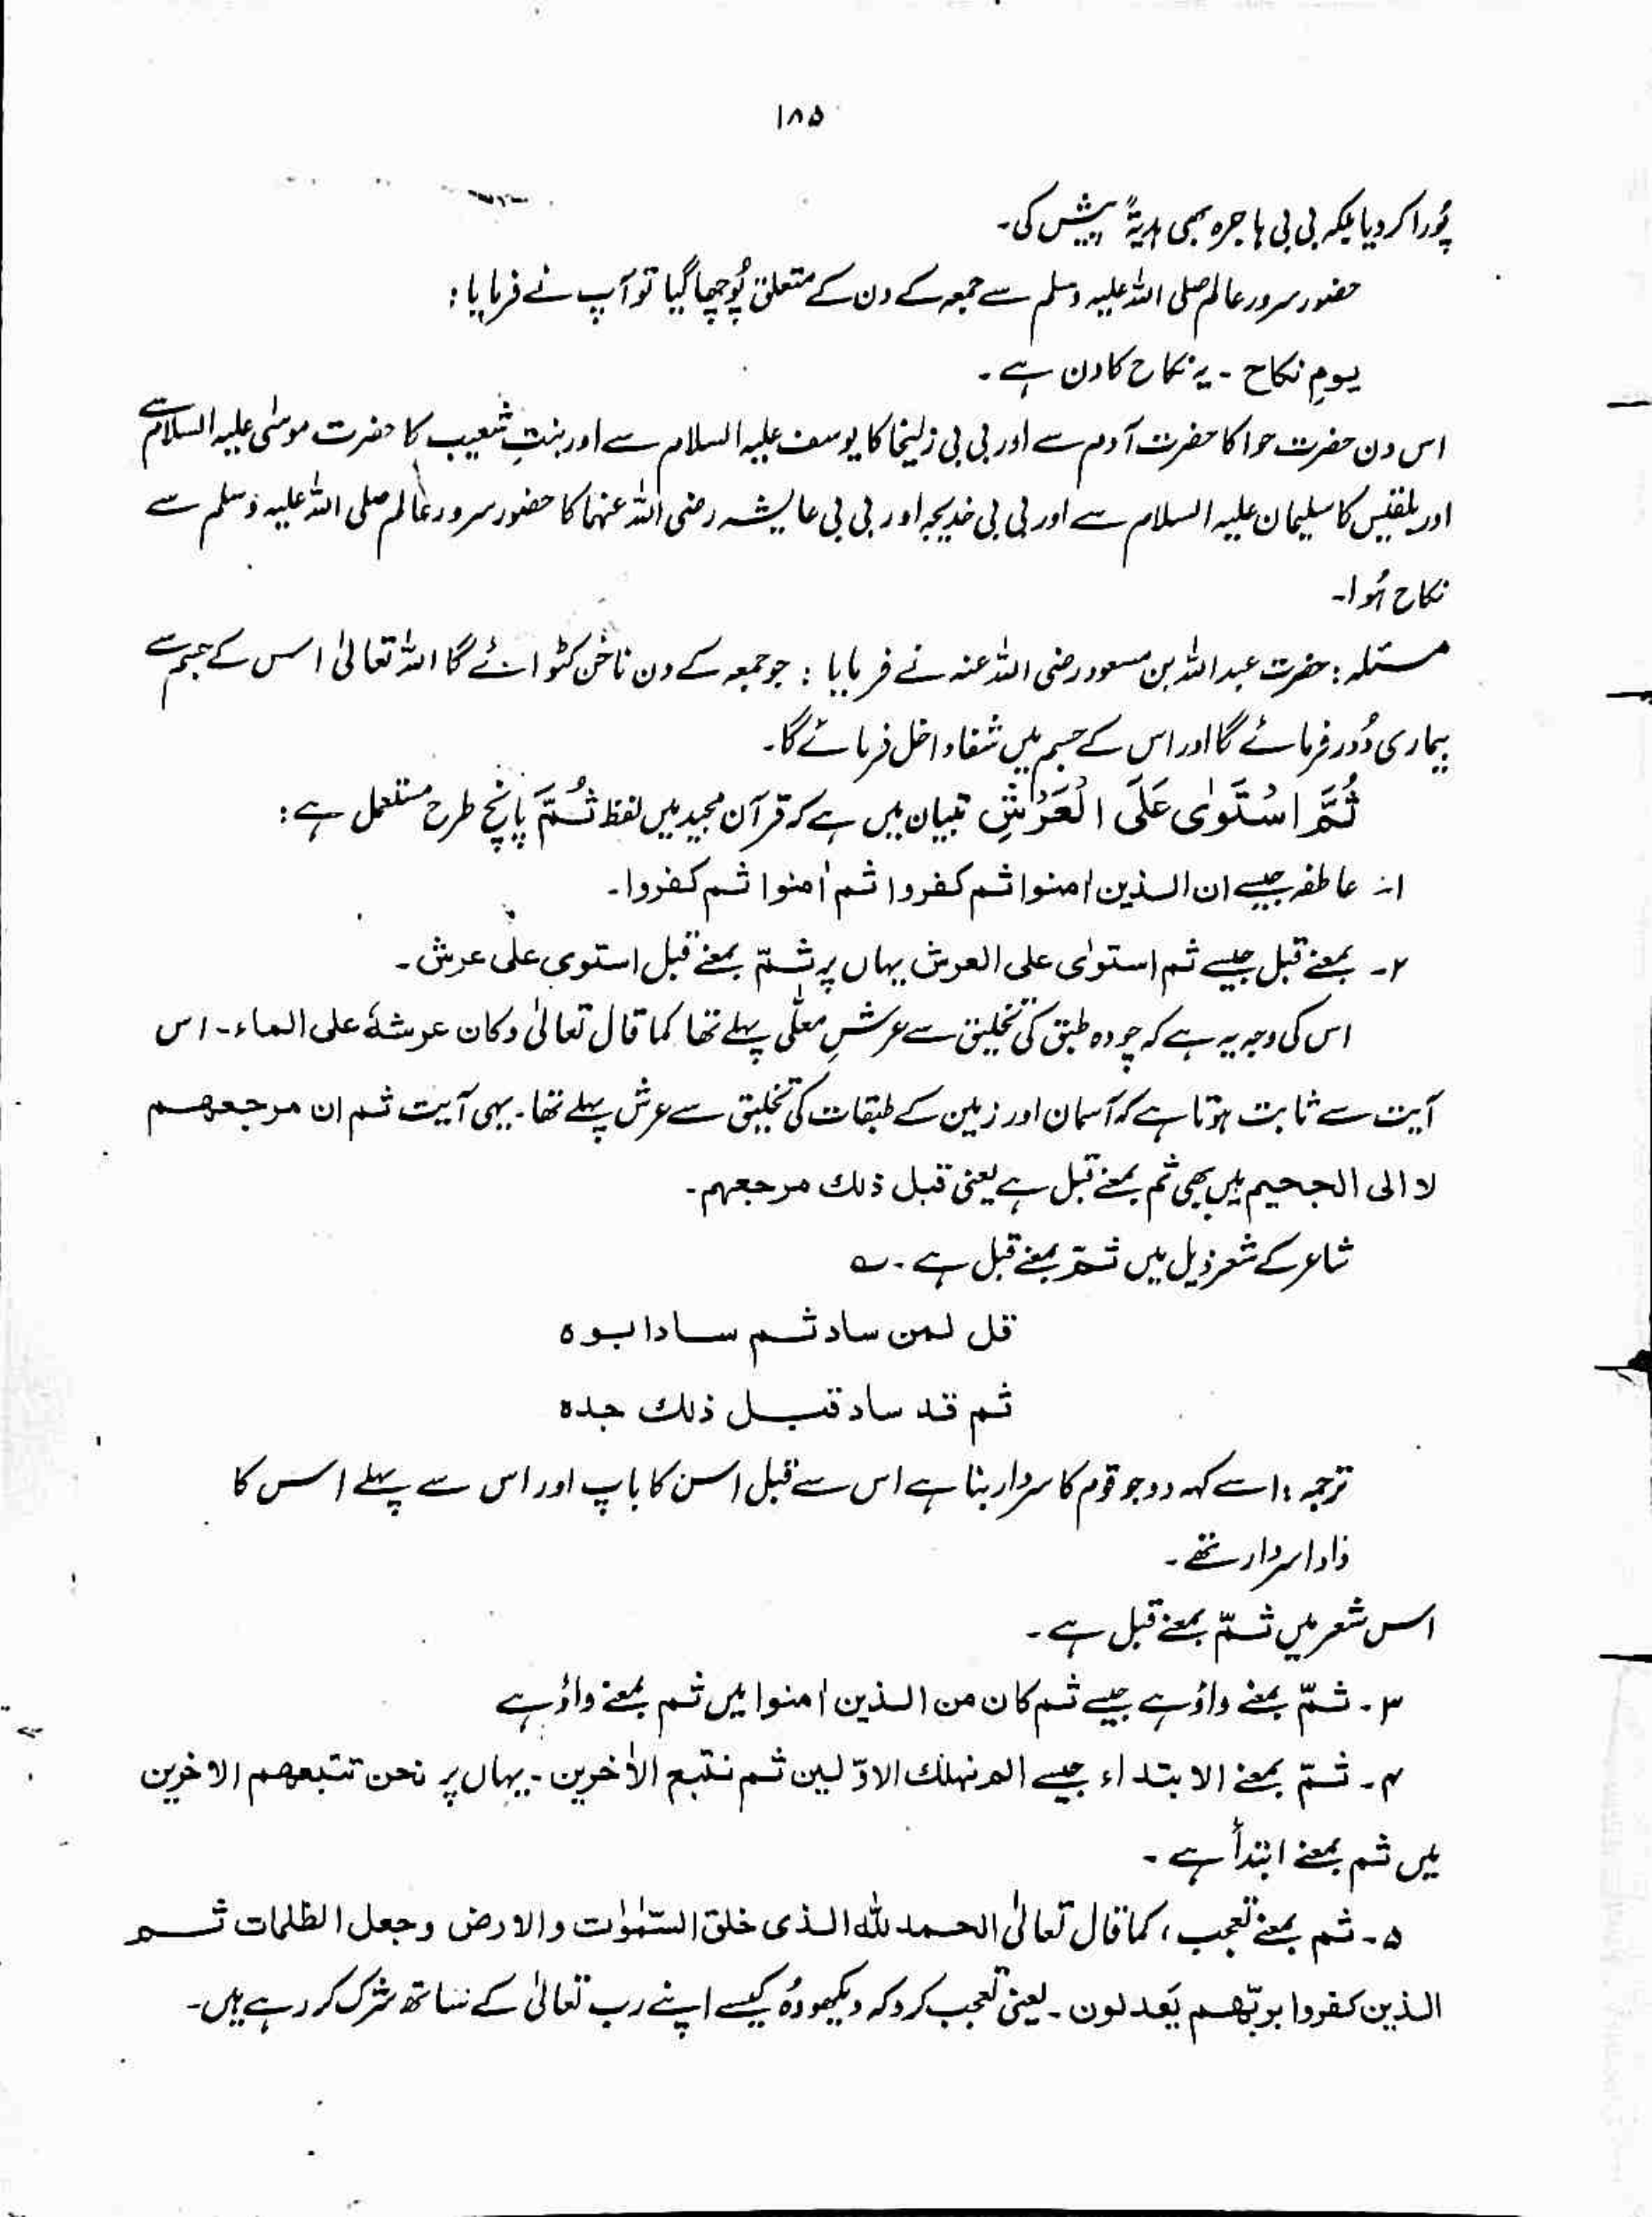 ۱۸۵
پُورا کر دیا بلکہ بی بی ہاجرہ بھی ہدیۃً پیش کی۔
حضور سرور عالم صلی اللہ علیہ وسلم سے جمعہ کے دن کے متعلق پُوچھا گیا تو آپ نے فرمایا :
یومِ نکاح ۔ یہ نکاح کا دن ہے ۔
اس دن حضرت حوا کا حضرت آدم سے اور بی بی زلیخا کا یوسف علیہ السلام سے اور بنتِ شعیب کا حضرت موسٰی علیہ السلام سے
اور بلقیس کا سلیمان علیہ السلام سے اور بی بی خدیجہ اور بی بی عایشہ رضی اللہ عنہما کا حضور سرور عالم صلی اللہ علیہ وسلم سے
نکاح ہُوا۔
مسئلہ : حضرت عبداللہ بن مسعود رضی اللہ عنہ نے فرمایا : جو جمعہ کے دن ناخن کٹوائے گا اللہ تعالیٰ اس کے جسم سے
بیماری دُور فرمائے گا اور اس کے جسم میں شفاء داخل فرمائے گا۔
ثُمَّ اسْتَوٰى عَلَى الْعَرْشِ تبیان میں ہے کہ قرآن مجید میں لفظ ثُمَّ پانچ طرح مستعمل ہے :
۱۔ عاطفہ جیسے ان الذین اٰمنوا ثم کفروا ثم اٰمنوا ثم کفروا۔
۲۔ بمعنے قبل جیسے ثم استوٰی علی العرش یہاں پر ثمّ بمعنے قبل استوی علٰی عرش ۔
اس کی وجہ یہ ہے کہ چودہ طبق کی تخلیق سے عرشِ معلّٰی پہلے تھا کما قال تعالیٰ وکان عرشہٗ علی الماء ۔ اس
آیت سے ثابت ہوتا ہے کہ آسمان اور زمین کے طبقات کی تخلیق سے عرش پہلے تھا ۔ یہی آیت ثم ان مرجعھم
لا الی الجحیم میں بھی ثم بمعنے قبل ہے یعنی قبل ذٰلک مرجعہم ۔
شاعر کے شعر ذیل میں ثمّ بمعنے قبل ہے ۔ ؎
قل لمن ساد ثم ساد ابوہ
ثم قد ساد قبل ذٰلک جدہ
ترجمہ : اسے کہہ دو جو قوم کا سردار بنا ہے اس سے قبل اس کا باپ اور اس سے پہلے اس کا
دادا سردار تھے ۔
اس شعر میں ثمّ بمعنے قبل ہے ۔
۳ ۔ ثمّ بمعنے واؤ ہے جیسے ثم کان من الذین اٰمنوا میں ثم بمعنے واؤ ہے
۴ ۔ ثمّ بمعنے الابتداء جیسے الم نہلک الاوّلین ثم نتبع الاٰخرین ۔ یہاں پر نحن نتبعھم الاخرین
میں ثم بمعنے ابتدأ ہے ۔
۵ ۔ ثم بمعنے تعجب ، کما قال تعالیٰ الحمد للہ الذی خلق السّمٰوٰت والارض وجعل الظلمات ثم
الذین کفروا بربّھم یَعدلون ۔ یعنی تعجب کرو کہ دیکھو وُہ کیسے اپنے رب تعالیٰ کے ساتھ شرک کر رہے ہیں۔